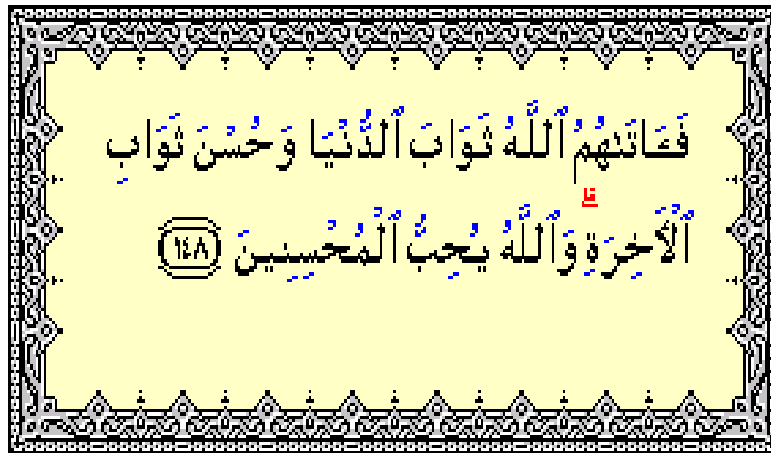 فَـَٔاتَىٰهُمُ ٱللَّهُ ثَوَابَ ٱلدُّنْيَا وَحُسْنَ ثَوَابِ
ٱلْأَخِرَةِ وَٱللَّهُ يُحِبُّ ٱلْمُحْسِنِينَ ١٤٨